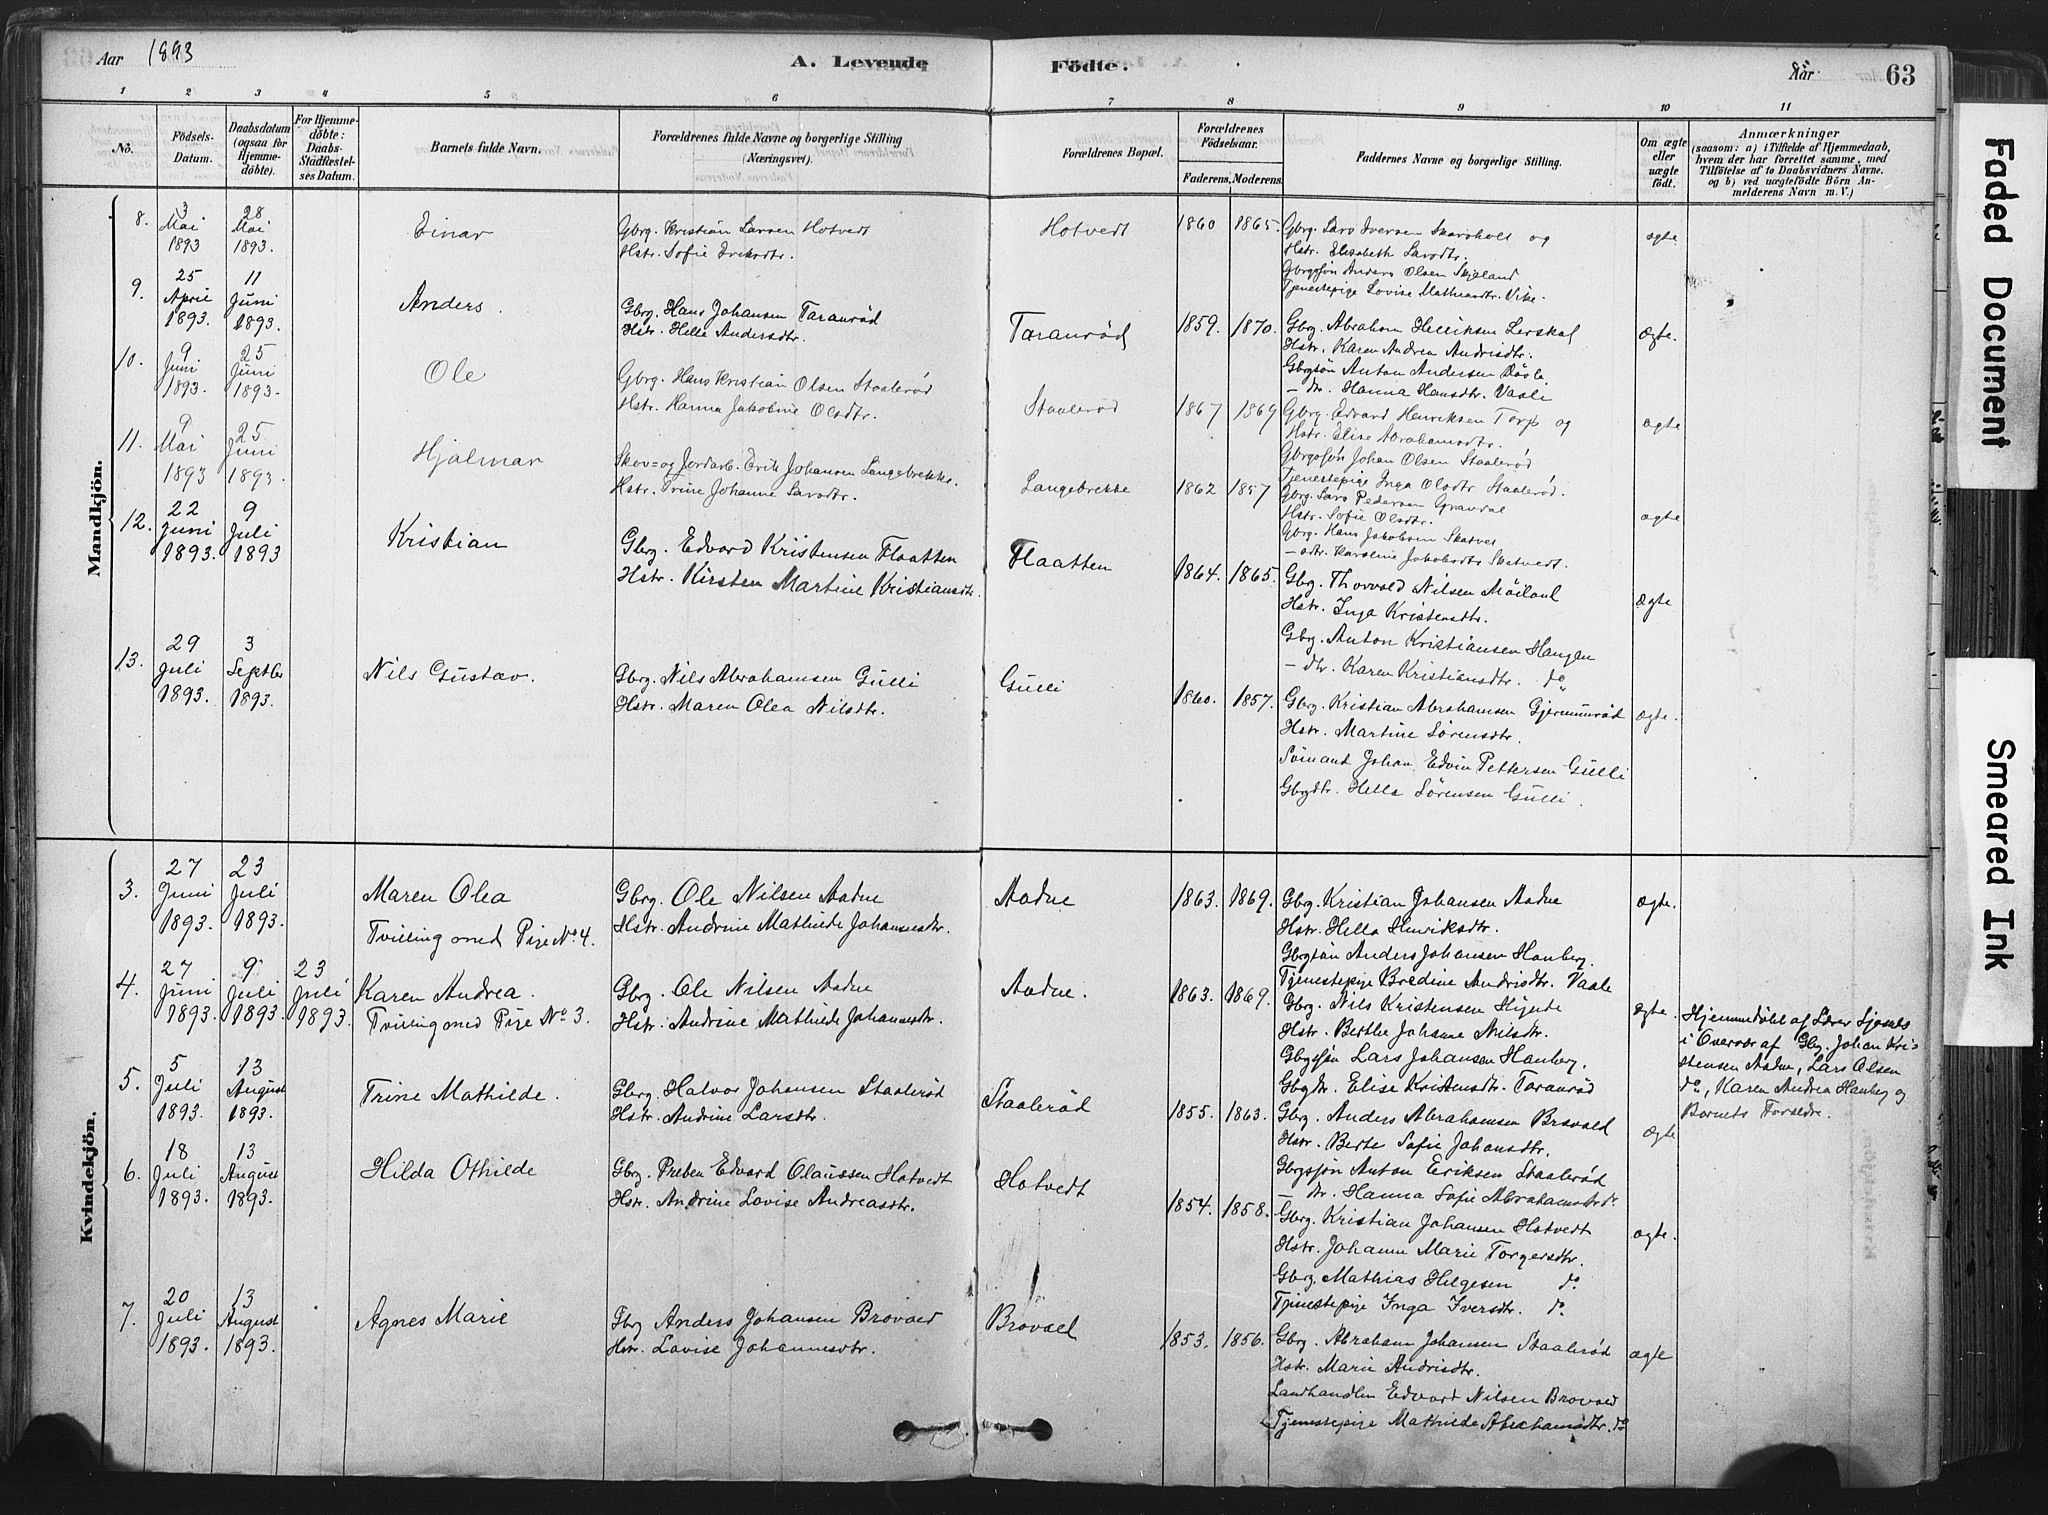 Aar 1893
A. Levende Födte.
Aar 63
1 2 3 4 5 6 7 8 9 10 11
No.
Födsels-Datum.
Daabsdatum (ogsaa for Hjemmedöbte).
For Hjemmedöbte: Daabs-Stadfæstelses Datum.
Barnets fulde Navn.
Forældrenes fulde Navne og borgerlige Stilling (Næringsvei).
Forældrenes Bopæl.
Forældrenes Födselsaar.
Faderens. Moderens.
Faddernes Navne og borgerlige Stilling.
Om ægte eller uægte födt.
Anmærkninger
(saasom: a) i Tilfælde af Hjemmedaab, hvem der har forrettet samme, med Tilföielse af to Daabsvidners Navne. og b) ved uægtefödte Börn Anmelderens Navn m. V.)
Mandkjön.
8. 3 Mai 1893 28 Mai 1893. Einar
Gbrg. Kristian Larsen Hotvedt
Hstr. Sofie
Hotvedt 1860 1865.
Gbrg. Lars Iversen og
Hstr. Elisabeth Larsdtr.
Gbrgssøn Anders Olsen Skjeland
Tjenestepige Lovise
ægte
9. 25 April 1893. 11 Juni 1893. Anders.
Gbrg. Hans Johansen Taranrød
Hstr. Helle Andersdtr.
Taranrød 1859. 1870.
Gbrg. Abraham Lerskal
Hstr. Karen Andrea Andrisdtr.
Gbrgsøn Anton Andersen
– dtr. Hanna Hansdtr. Vaale
Ægte.
10. 9 Juni 1893. 25 Juni 1893. Ole
Gbrg. Hans Kristian Olsen Staalerød
Hstr. Hanna Jakobine Olsdtr.
Staalerød 1867 1869
Gbrg. Edvard Henriksen Torp og
Hstr. Elise Abrahamsdtr.
Gbrgssøn Johan Olsen Staalerød
Tjenestepige Inga Olsdtr Staalerød.
ægte
11. 9 Mai 1893 25 Juni 1893. Hjalmar
Skov= og Jordarb. Erik Johansen Langebrekke.
Hstr. Trine Johanne Larsdtr.
Langebrekke 1862 1857
Gbrg. Lars Pedersen Gravdal
Hstr. Sofie Olsdtr.
Gbrg. Hans Jakobsen
Karoline
ægte
12. 22 Juni 1893. 9 Juli 1893 Kristian
Gbrg. Edvard Kristensen Flaatten
Hstr. Kirsten Martine Kristiansdtr.
Flaatten 1864. 1865.
Gbrg. Thorvald Nilsen Møiland
Hstr. Inga Kristensdtr.
Gbrg. Anton Kristiansen Haugen
– dtr. Karen Kristiansdtr. do
Ægte
13. 29 Juli 1893. 3 Septbr 1893. Nils Gustav.
Gbrg. Nils Abrahamsen Gulli
Hstr. Maren Olea Nilsdtr.
Gulli 1860. 1857.
Gbrg. Kristian Abrahamsen Gjermunrød
Hstr. Martine Sørensdtr.
Sømand Johan Edvin Pettersen Gulli
Gbrgdtr. Hella Sørensen Gulli.
ægte.
Kvindekjön.
3. 27 Juni 1893. 23 Juli 1893. Maren Olea
Tvilling med Pige No 4.
Gbrg. Ole Nilsen Aadne
Hstr. Andrine Mathilde Johannesdtr.
Aadne 1863. 1869.
Gbrg. Kristian Johansen Aadne
Hstr. Hella Henriksdtr.
Gbrgsøn Anders Johansen Hanberg.
Tjenestepige Bredine Andrisdtr. Vaale
ægte.
4. 27 Juni 1893. 9 Juli 1893. 23 Juli 1893. Karen Andrea.
Tvilling med Pige No 3.
Gbrg. Ole Nilsen Aadne
Hstr. Andrine Mathilde Johannesdtr.
Aadne. 1863. 1869.
Gbrg. Nils Kristensen
Hstr. Berthe Johanne Nilsdtr.
Gbrgssøn Lars Johansen Hanberg.
Gbrgdtr. Elise Kristensdtr. Taranrød
ægte.
Hjemmedøbt af Lærer
i Overvær af Gbrg. Johan Kri=
stensen Aadne, Lars Olsen
do, Karen Andrea Hanberg og
Barnets Forældre.
5. 5 Juli 1893. 13 August 1893. Trine Mathilde.
Gbrg. Halvor Johansen Staalerød
Hstr. Andrine Larsdtr.
Staalerød 1855. 1863.
Gbrg. Anders Abrahamsen Bravold
Hstr. Berte Sofie Johansdtr.
Gbrgssjøn Anton Eriksen Staalerød
– dtr. Hanna Sofie Abrahamsdtr do
ægte
6. 18 Juli 1893. 13 August 1893. Hilda Othilde
Gbrg. Preben Edvard Olaussen Hotvedt
Hstr. Andrine Lovise Andreasdtr.
Hotvedt 1854. 1858.
Gbrg. Kristian Johansen Hotvedt
Hstr. Johanne Marie Torgersdtr.
Gbrg. Mathias Helgesen do
Tjenestepige Inga Iversdtr. do.
ægte.
7. 20 Juli 1893. 13 August 1893. Agnes Marie
Gbrg Anders Johansen Brovold
Hstr. Lovise Johannesdtr.
Brovold 1853. 1856.
Gbrg. Abraham Johansen Staalerød
Hstr. Marie Andrisdtr.
Landhandler Edvard Nilsen Brovold
Tjenestepige Mathilde Abrahamsdtr. do
ægte
Faded Document
Smeared Ink